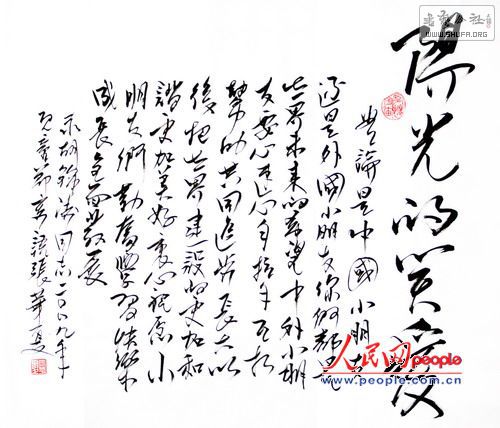 陽光的
無論是中國小朋友
還是外國小朋友你們都是
世界未來的希望中外小朋
友要心連心手拉手互相
幫助共同進步長大以
後把世界建設的更加和
諧更加美好衷心祝愿小
朋友們勤奮學習快樂
成長全面發展
胡錦濤同志二〇〇九年
張華夏
人民网 people
www.people.com.cn
WWW.SHUFA.ORG